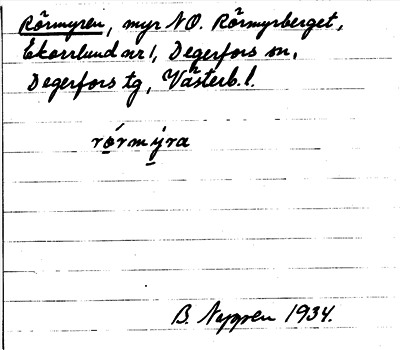 Rörmyren, myr NO. Rörmyrberget,
Ekorrlund nr 1, Degerfors sn,
Degerfors tg, Västerb. l.
rórmýra
B. Neppen 1934.